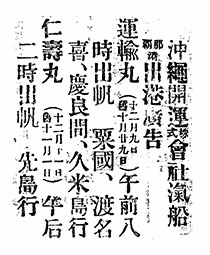 沖繩開運株式會社氣船
那覇出港廣告
運輸丸(十二月九日 舊十月廿九日)午前八
時出帆 粟國、渡名
喜、慶良間、久米島行
仁壽丸(十二月十一日 舊十一月一日)午后
二時出帆 先島行